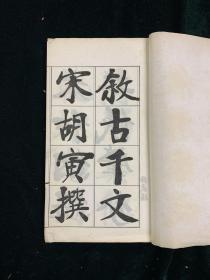 敘古千文
宋胡寅撰